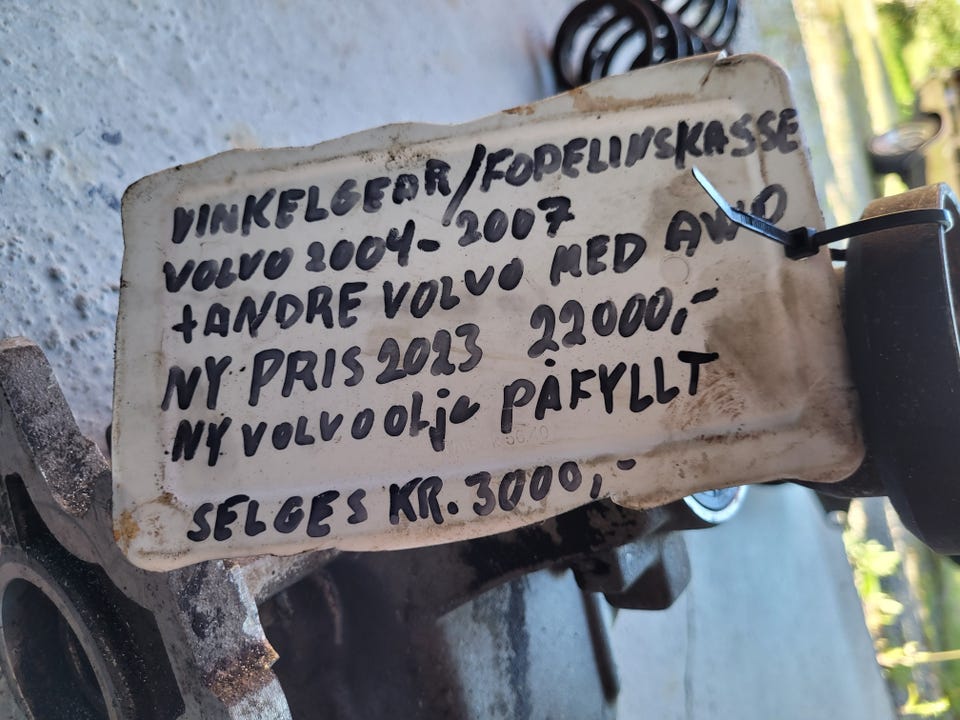 VINKELGEAR/FODELINSKASSE
VOLVO 2004-2007
+ANDRE VOLVO MED AWD
NY PRIS 2023 22000,-
NY VOLVO OLje PÅFYLLT
SELGES KR. 3000,-